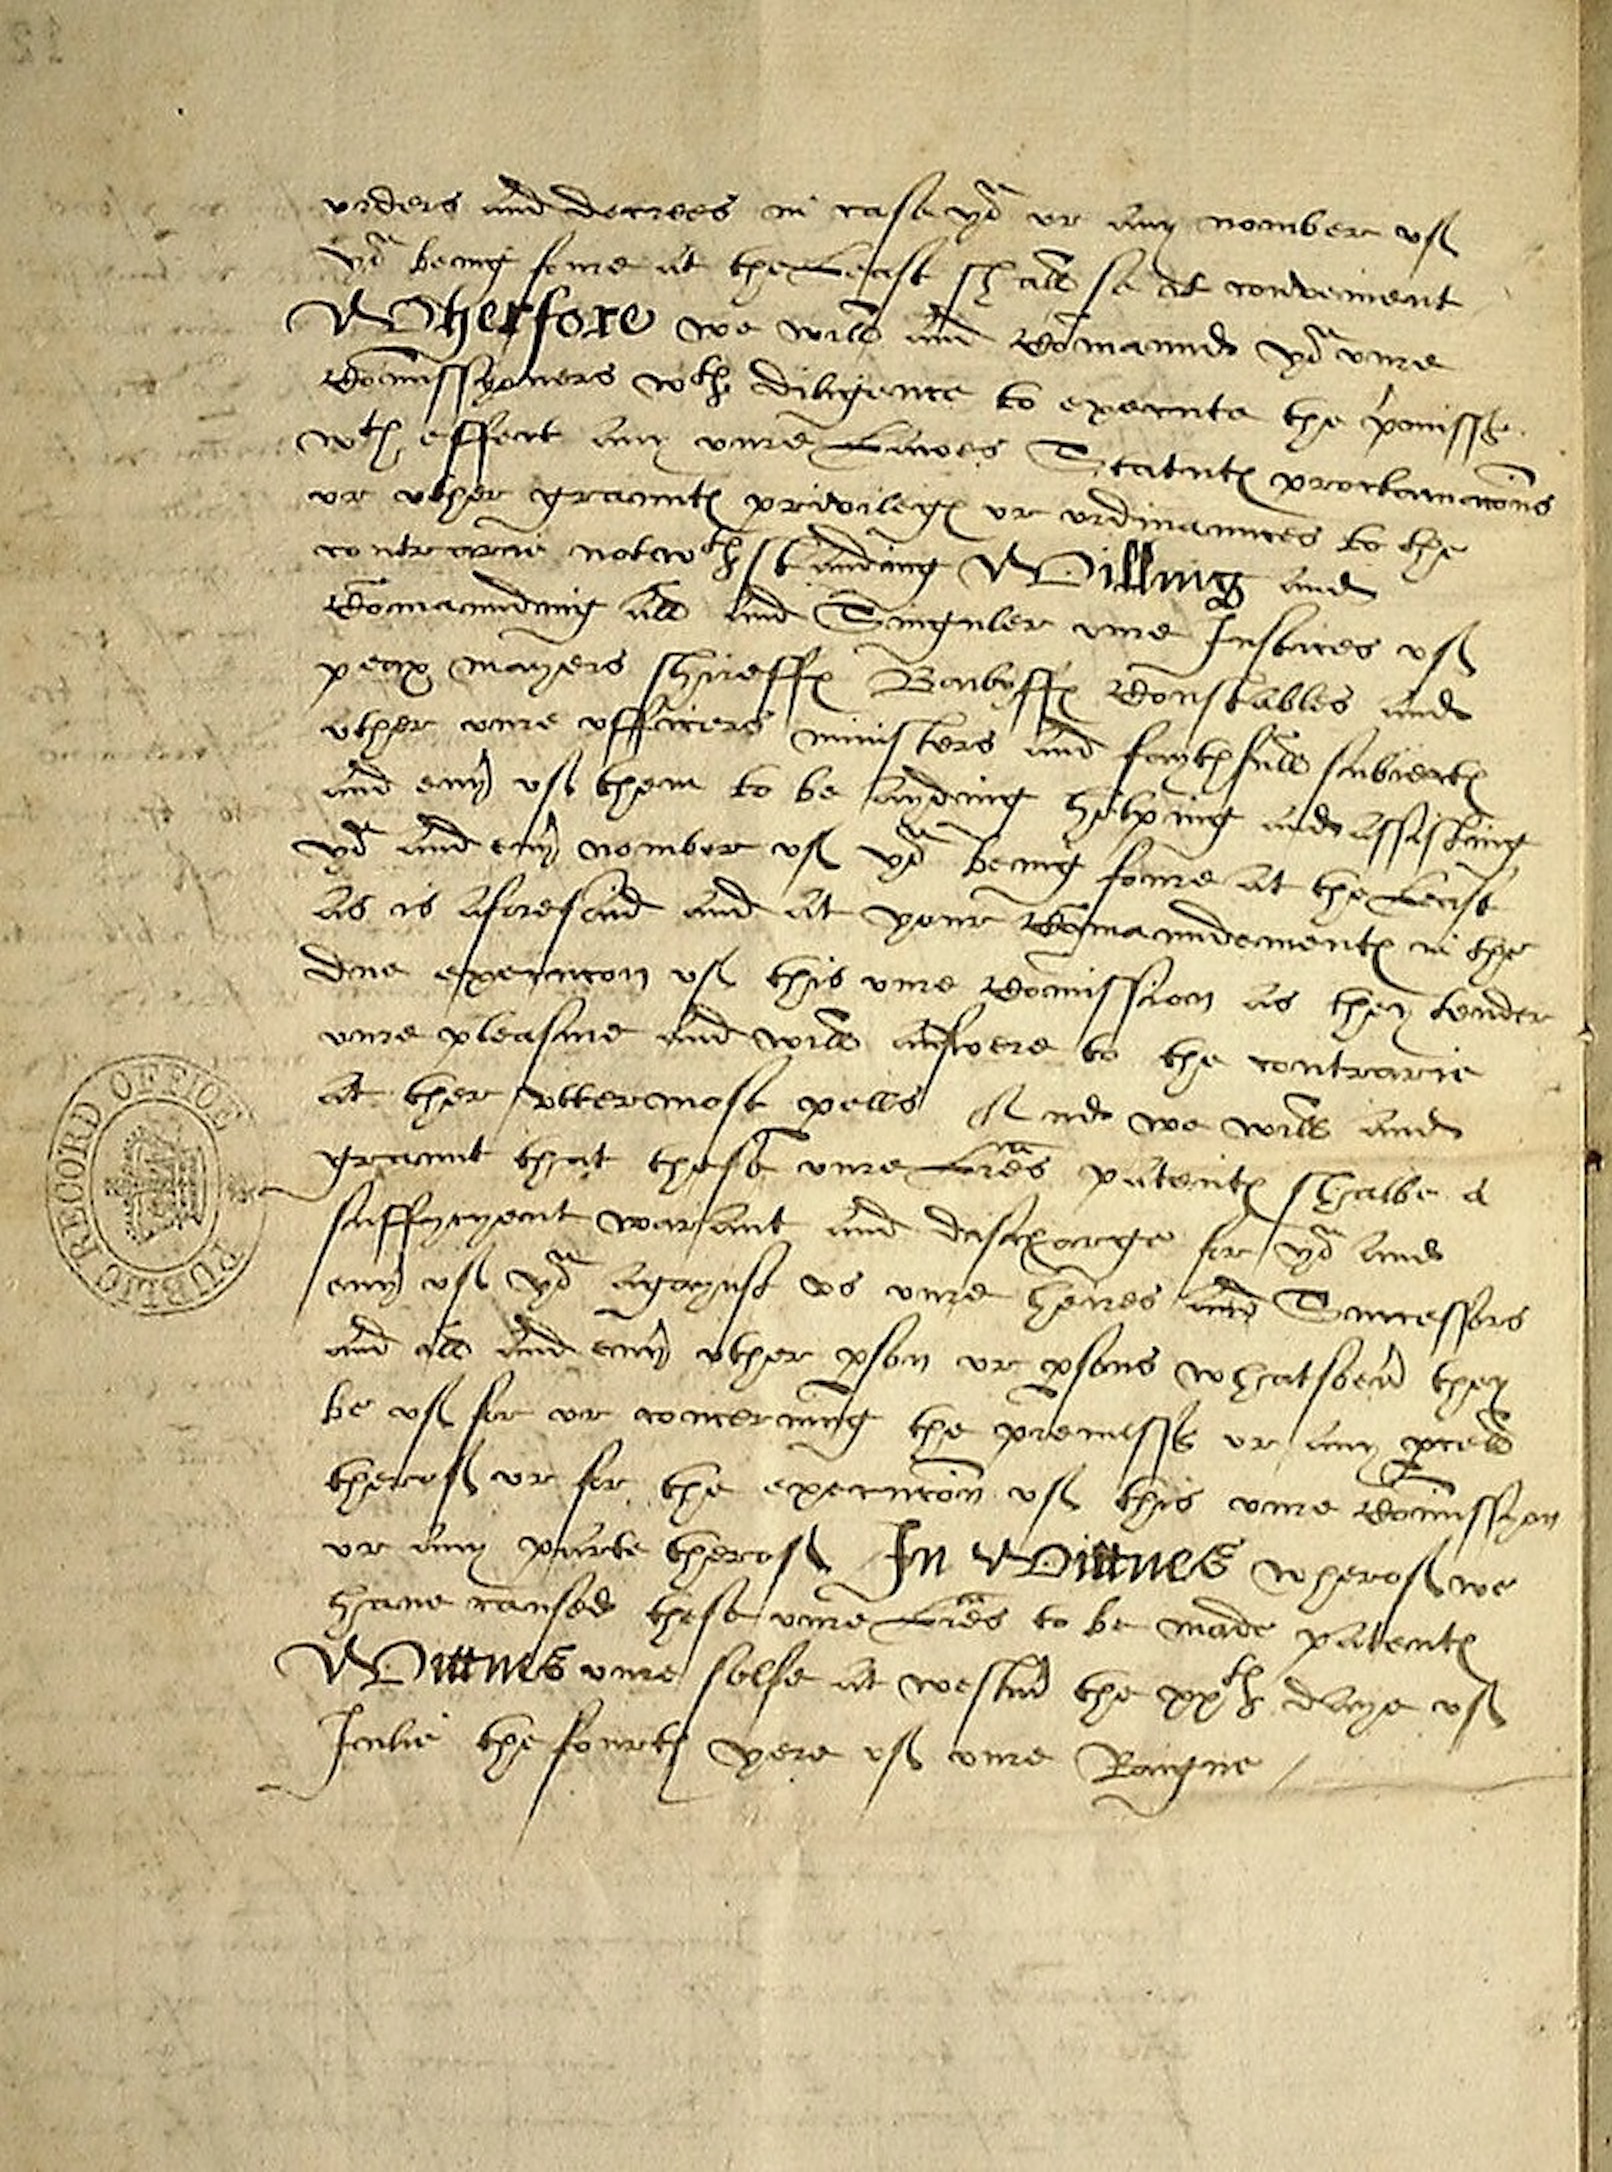 orders and decrees in case yo^u or any nomber of
yo^u being foure at the Least shall se it convenient
Wherfore we will and Comaunde yo^u oure
Comissyoners w^th diligence to execute the p'misses
w^th effect any oure Lawes Statutes proclamacons
or other grauntes privileges or ordinaunces to the
contrarie notw^th standing Willing and
Comaunding all and Singuler oure Justices of
peax mayers shireffes Baylyffes Constables and
other oure officers ministers and faythfull subiectes
and eu'y of them to be ayding helping and assisting
yo^u and eu'y nomber of yo^u being foure at the Least
as is aforesaid and at your Comaundementes in the
due execucon of this oure Comission as they tender
oure pleasure and will answere to the contrarie
at ther vttermost perlls And we will and
graunt that these oure L^res patentes shalbe a
suffycyent warrant and discharge for yo^u and
eu'y of yo^u agaynst vs oure heires and Successors
and all and eu'y other pson or psons whatsoeu' they
be of for or concerning the premisses or any pcell
therof or for the execucon of this oure Comissyon
or any parte therof In Wittnes wherof we
haue caused these oure L^res to be made patentes
Wittnes oure selfe at westm' the xx^th daye of
Julie the fourth yere of oure Raigne
PUBLIC RECORD OFFICE